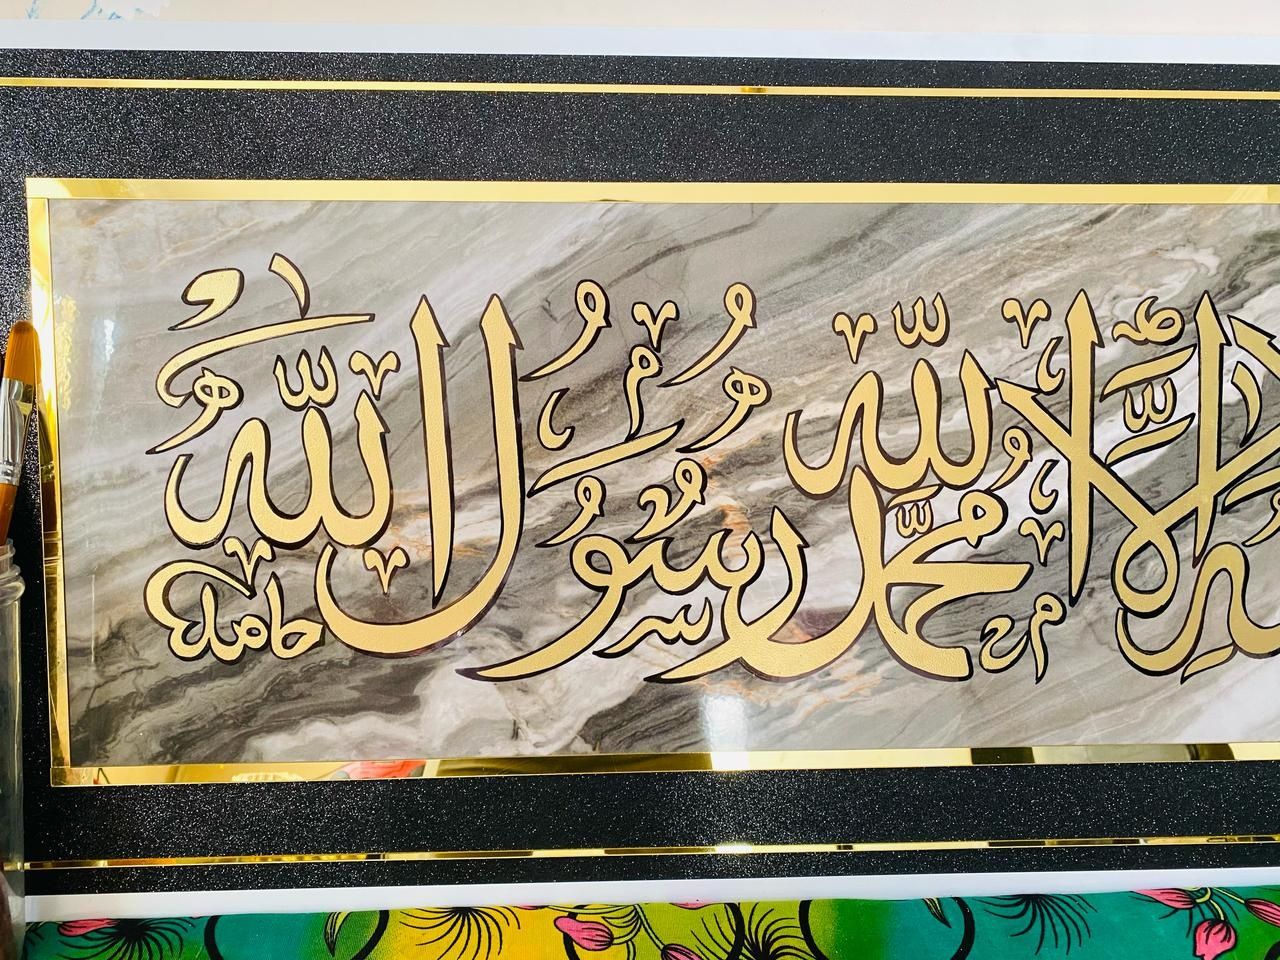 إلا الله محمد رسول الله
حامد